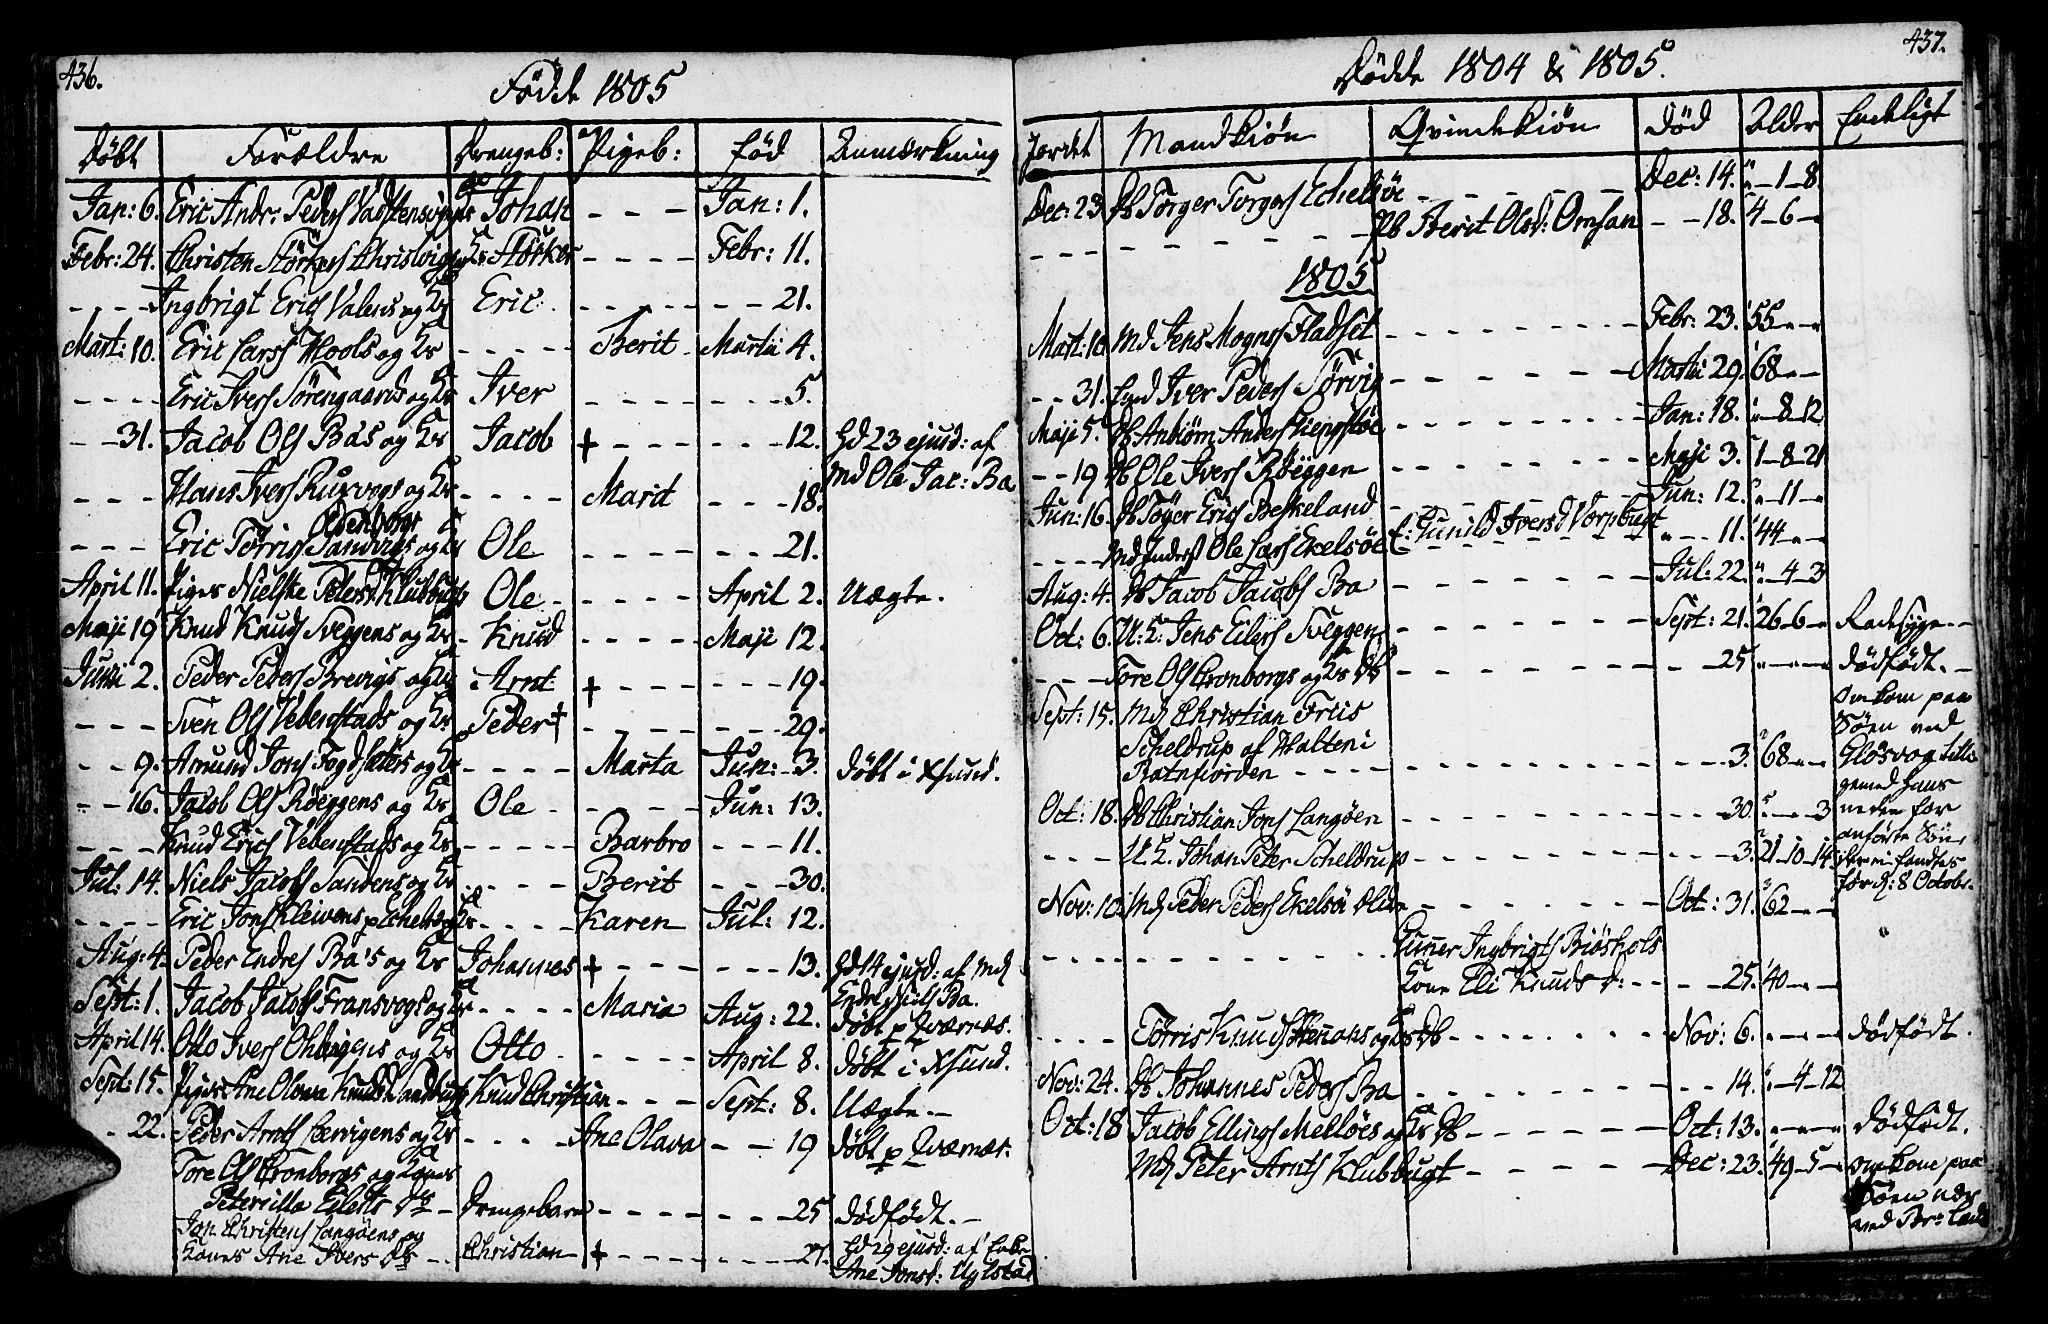 436.
Födde 1805
Döbt Forældre Drengeb: Pigeb: född Anmerkning
Jan: 6. Eric Andr: Peders og Johan - - - Jan: 1.
Febr: 24. Christen Störkers Christvigs og Ks Störker - - - - Febr: 11.
- - - - Ingbrigt Erics Valens og Ks Eric - - - - - - 21.
Mart: 10. Eric Larss Hools og Ks - - - - Berit Martii 4.
- - - - Eric Ivers Sörengaards og Ks Iver - - - - - - - 5.
- - 31. Jacob Ols Bas og Ks Jacob + - - - - - - 12. Hd 23 ejusd: af
Md Ole Jac: Ba
- - - Hans Ivers Ruxvogs og Ks - - - - Marit - - - 18.
Odenborgs
- - - Eric Törris Sandvigs og Ks Ole - - - - - - 21.
April 11. Piges Nielske Peters d Klubbugt Ole - - - - - April 2. Uægte.
Maji 19 Knud Knuds Sveggens og Ks - Knud - - - - Maji 12.
Junii 2. Peder Peders Brevigs og Ks Arnt + - - - - - - 19.
- - - Sven Ols Vebenstads og Ks Peder + - - - - - - - 29.
- - 9. Amund Jons Fogdsæters og Ks - - - - Marta Jun: - 3. döbt i Xsund.
- - 16. Jacob Ols Röeggens og Ks Ole - - - - Jun: 13.
- - - Knud Erics Vebenstads og Ks - - - - - Barbro - - - 11.
Jul: 14. Niels Jacobs Sandens og Ks - - - - Berit - - - 30.
- - - - Eric Jons Klewens p Ekelsöe og Ks - - - - Karen Jul: 12.
Aug: 4. Peder Endres Ba's og Ks Johannes + - - - - - - 13. Hd 14 ejusd: af Md
Endre Niels Ba.
Sept: 1. Jacob Jacobs Fransvogs og Ks - - - - Maria Aug: 22. döbt p Qværnæs.
April 14. Otto Ivers og Ks Otto - - - - April 8. döbt i Xsund.
Sept: 15. Piges Ane Olava Knuds d Knud Christian - - - Sept: 8. Uægte. -
- 22. Peder Arnts Lervigens og Ks - - - - Ane Olava - - 19 döbt p Qværnæs.
Tore Ols Cronborgs og Kones
Petersilla Eilerts Dr - Drengebarn - - - - - - - 25 dödfödt. -
Jon Christens Langöens og
Kones Ane Ivers Dr - - Christian + - - - - - - - 27. Hd 29 ejusd: af Enke
Ane Jonsd: Uglstad
437.
Dödde 1804 & 1805.
Jordet Mandkiön Qvindekiön Död Alder Endeligt
Dec: 23 Db Torger Torgers Echelsöe - - - - - - Dec: 14. " - 1 - 8.
- - - - - - - - - - Pb Berit Olsd: Omsan - - 18. 4 - 6 - "
1805
Mart: 10 Md Jens Mogns Fladset - - - - - - - - Febr: 23. 55 - " - "
- - 31. Iver Peders Törvig - - - - - - - Martii 29. 68 - " - "
Maji 5. Db Anbiörn Anders - - - - - - - Jan: 18. " - 8 - 12
- - 19 Db Ole Ivers Röeggen - - - - - - - Maji 3. 1 - 8 - 21
Jun: 16. Db Töger Erics Beskeland - - - - - - Jun: 12. " - 11 - "
- - - - Md Inderst Ole Lars Ekelsöe E: Gunild Ivers d - - 11. 44 - " - "
Aug: 4. Db Jacob Jacobs Ba - - - - - - - Jul: 22. " - 4 - 3
Oct: 6. U: K: Jens Eilers Sveggen - - - - - - - Sept: 21. 26 - 6 - " Radesyge. -
- - - Tore Ols Cronborgs og Ks Db - - - - - - - - 25 " - " - " dödfödt. -
Sept: 15. Md Christian Friis
Scheldrup af Halten i
Batnfiorden - - - - - - - - - - - - - 3. 68 - " - " omkom paa
Söen ved
Glosvog tilli
gemed hans
neden for
anförte Sön
ikke fandtes
för d: 8 Octobr.
Oct: 18. Db Christian Jons Langöen - - - - - - - - - - 30. " - " - 3
- - - U. K. Johan Peter Scheldrup - - - - - - - - - - 3. 21 - 10 - 14
Nov: 10. Md Peder Peders Ekelsöe - - - - - - - Oct: 31. 62 - " - "
- - - - - - - - - - Gunner Ingbrigts Biöshols
Kone Eli Knuds d: - - - - 25. 40 - " - "
- - - - Törris Knuds og Ks Db - - - - - - - Nov: 6. " - " - " dödfödt.
Nov: 24. Db Johannes Peders Ba - - - - - - - - - 14. " - 4 - 12
Oct: 18 Jacob Ellings Mellöes og Ks Db - - - - - - Oct: 13. " - " - " dödfödt.
Md Peter Arnts Klubbugt - - - - - - Dec: 23. 49 - 5 - " omkom paa
Söen